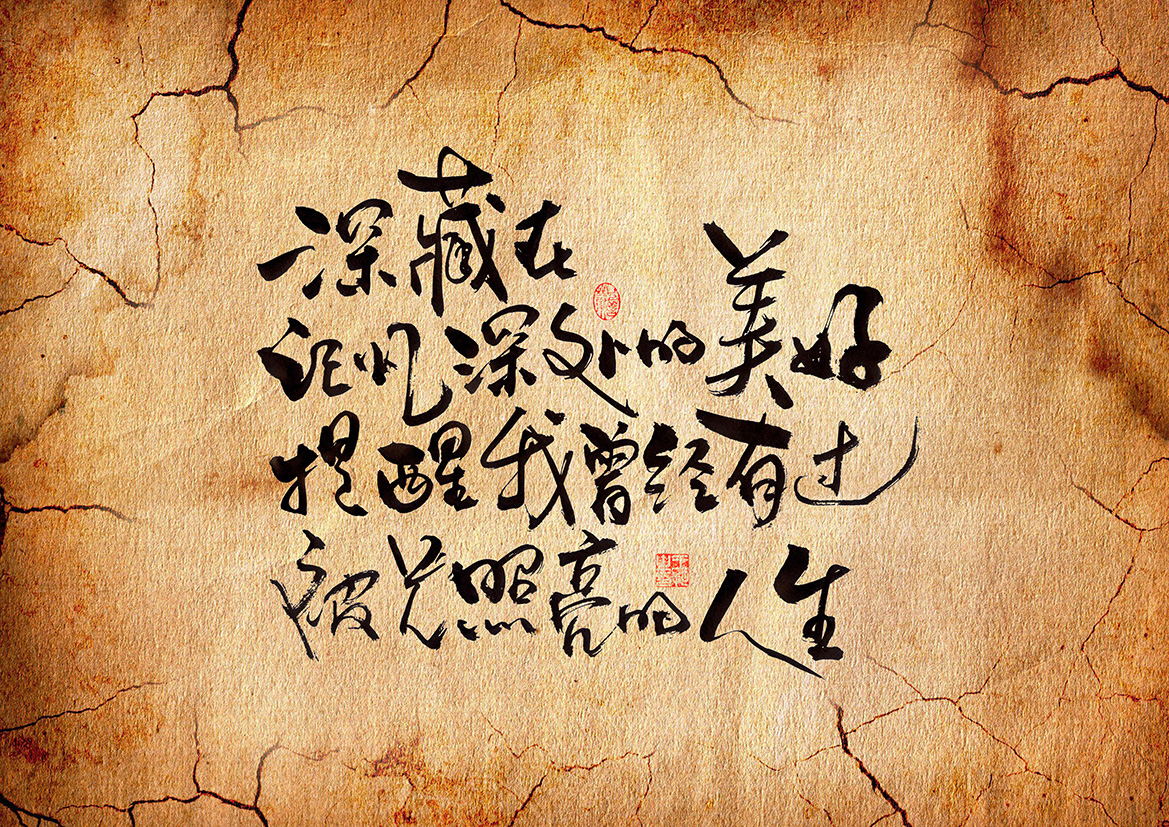 深藏在
记忆深处的美好
提醒我曾经有过
被光照亮的人生